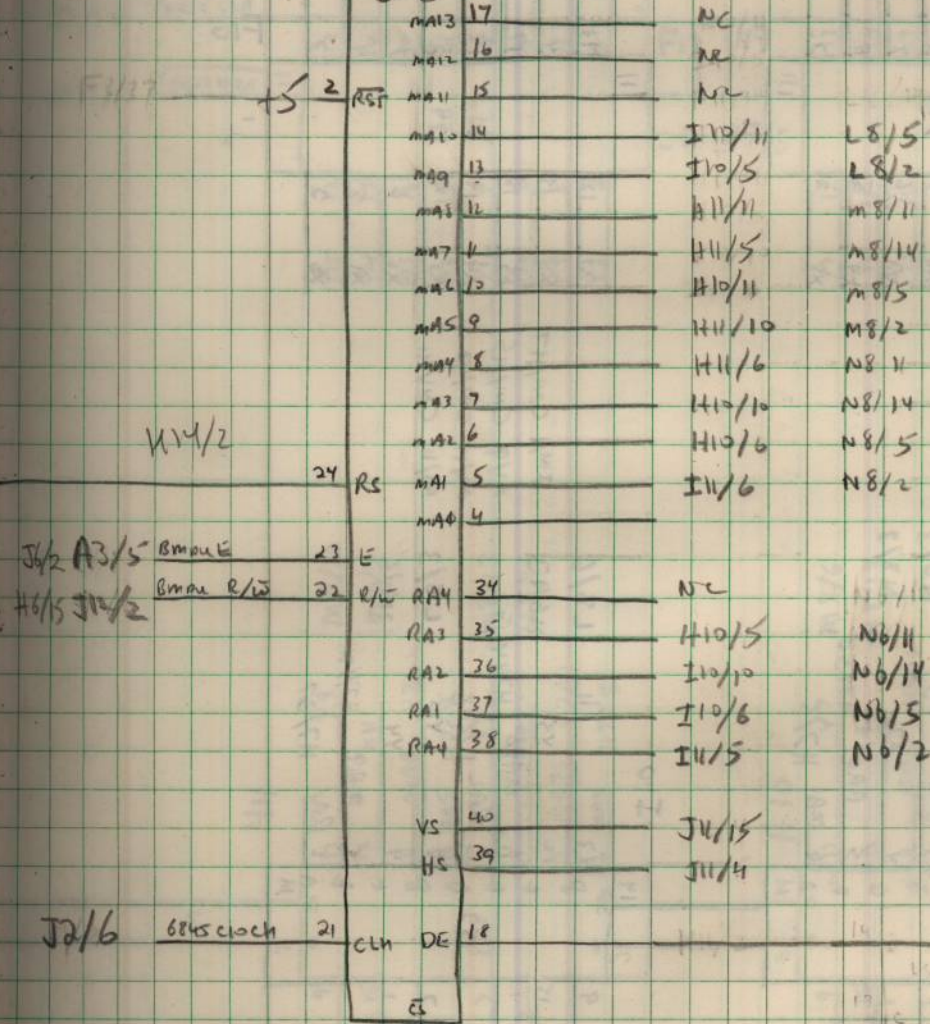 MA13 17 NC
MA12 16 NC
+5 2 RST MA11 15 NC
MA10 14 I10/11 L8/5
MA9 13 I10/5 L8/2
MA8 12 H11/11 M8/11
MA7 11 H11/5 M8/14
MA6 10 H10/11 M8/5
MA5 9 H11/10 M8/2
MA4 8 H11/6 N8 11
MA3 7 H10/10 N8/14
H14/2 MA2 6 H10/6 N8/5
24 RS MA1 5 I11/6 N8/2
MA0 4
J6/2 A3/5 BMPU E 23 E
H6/15 J12/2 BMPU R/W 22 R/W RA4 34 NC
RA3 35 H10/5 N6/11
RA2 36 I10/10 N6/14
RA1 37 I10/6 N6/5
RA4 38 I11/5 N6/2
VS 40 J11/15
HS 39 J11/4
J2/6 6845 clock 21 CLK DE 18
CS